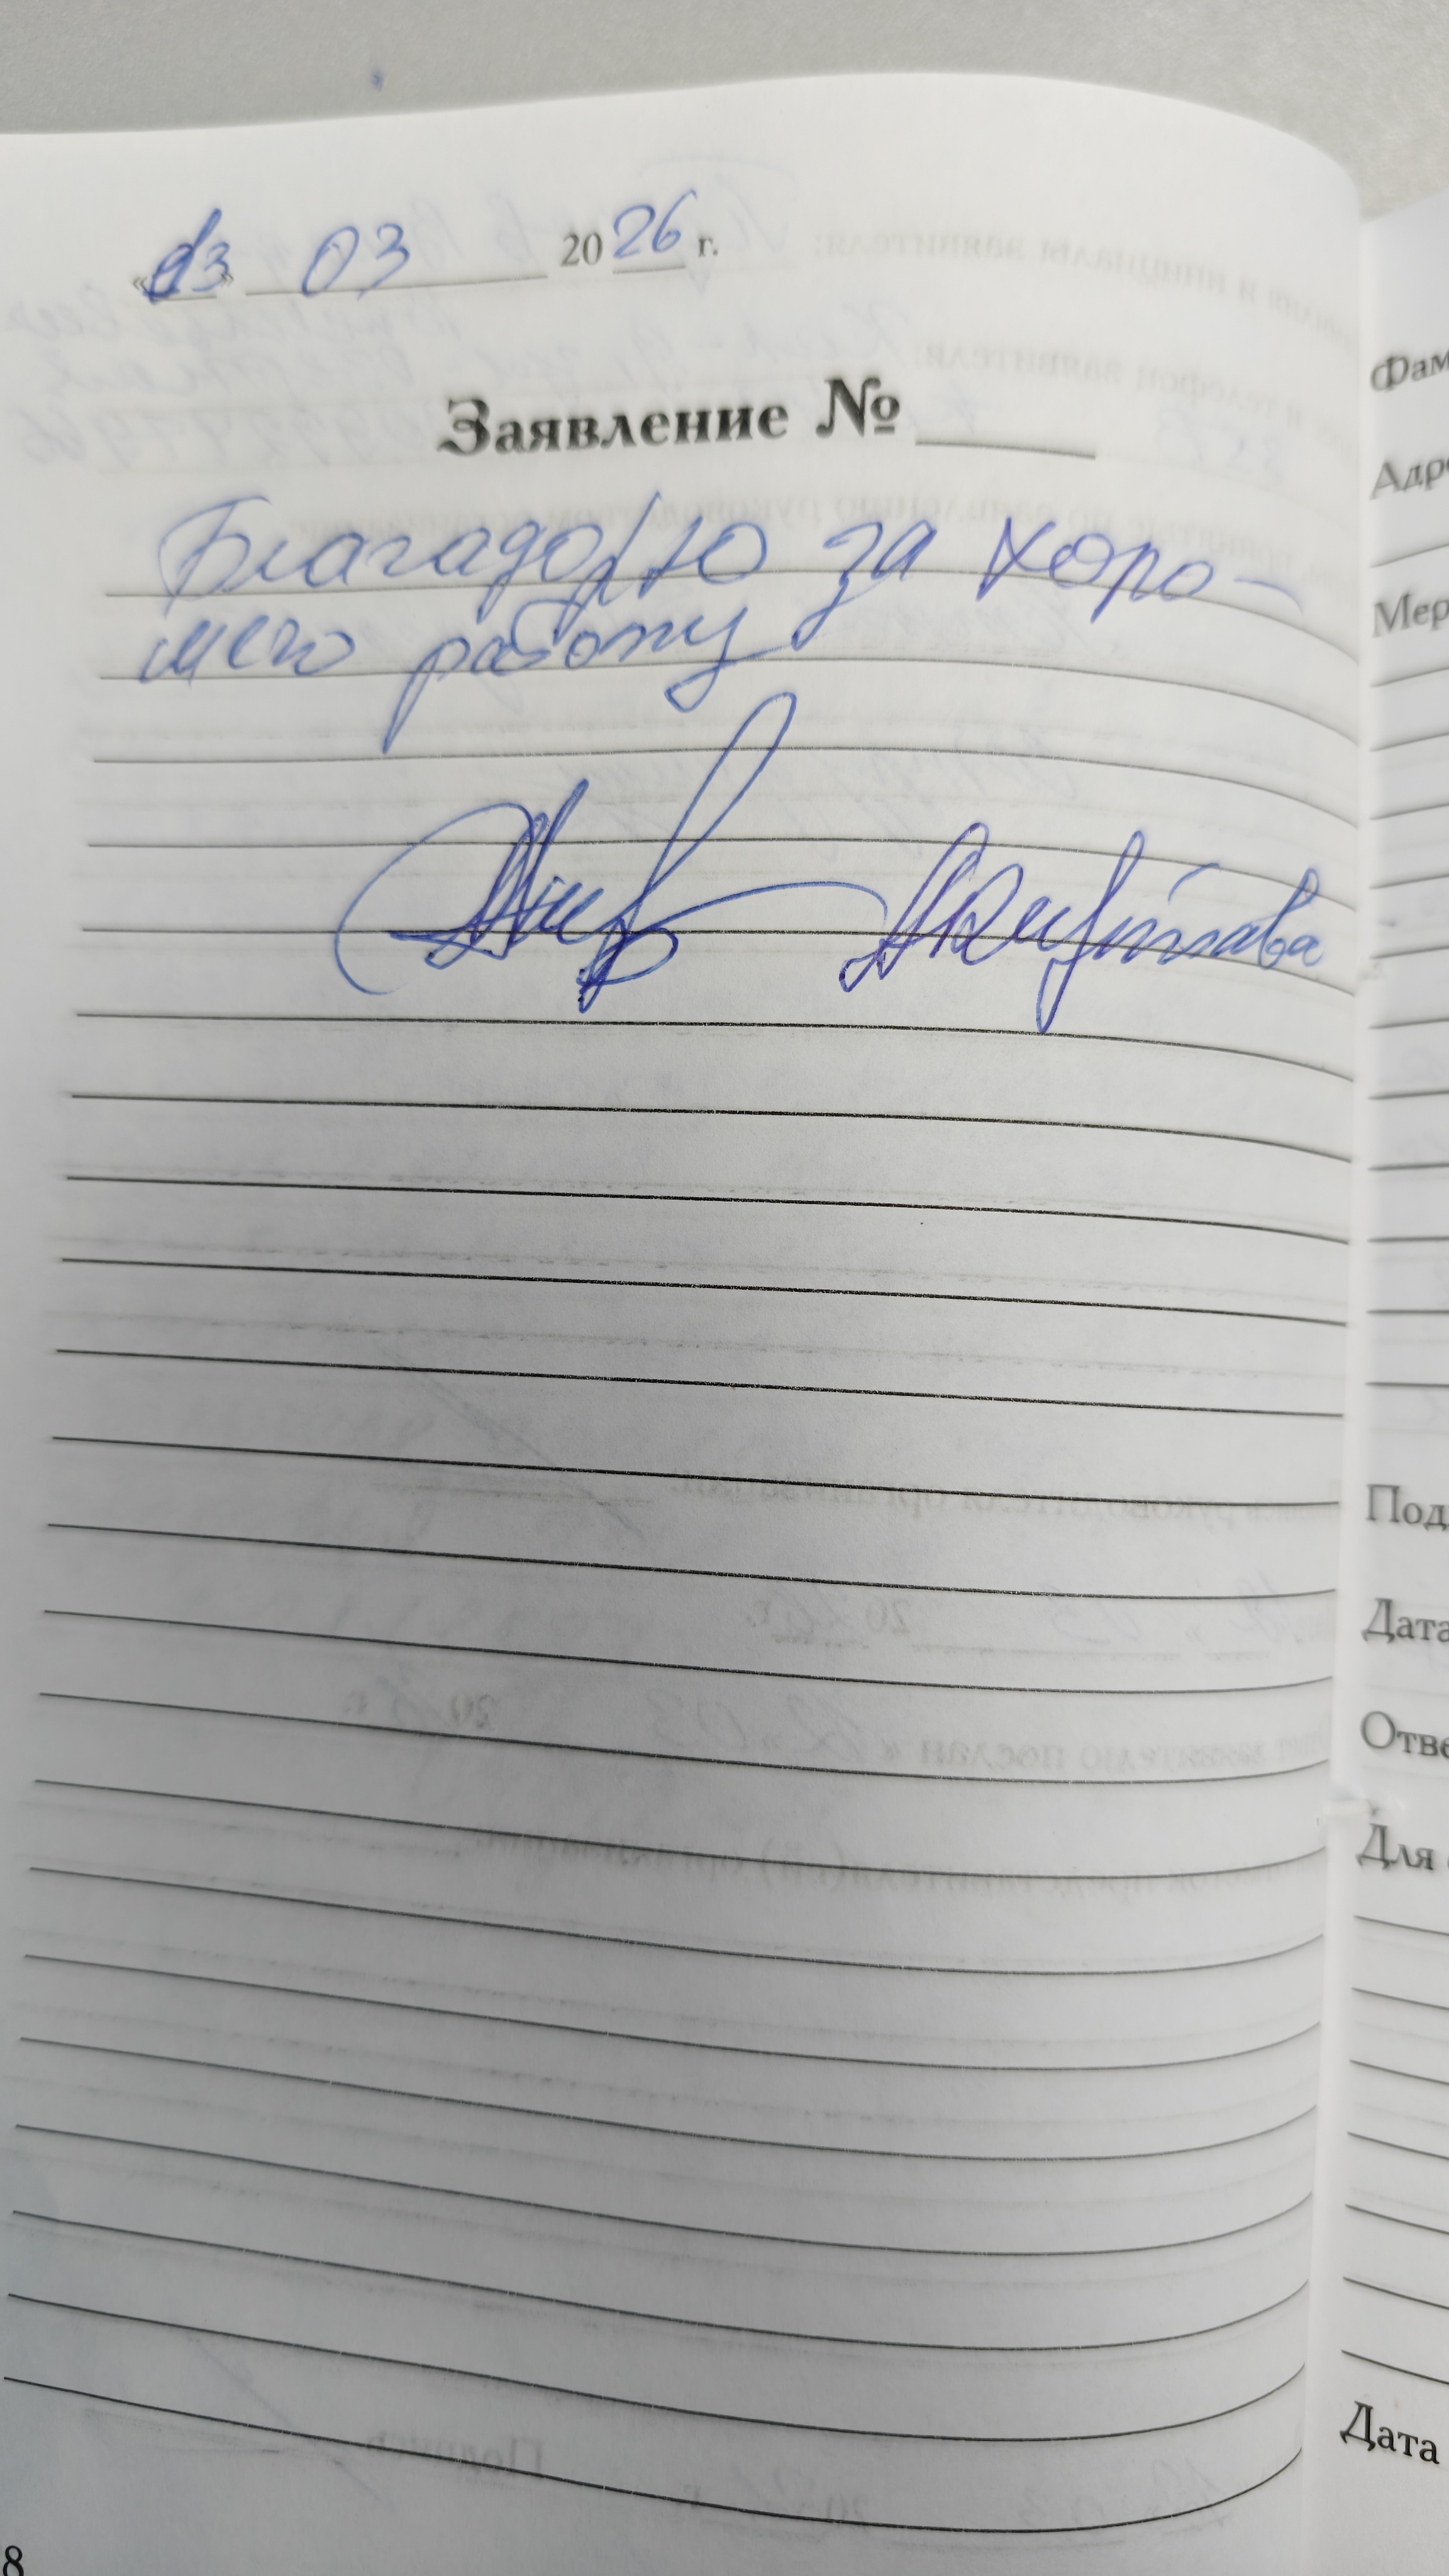 «13» 03 2026 г.
Заявление №
Благадорю за хоро-
шею работу
Фам
Адре
Мер
Под
Дата
Отве
Для
Дата
8